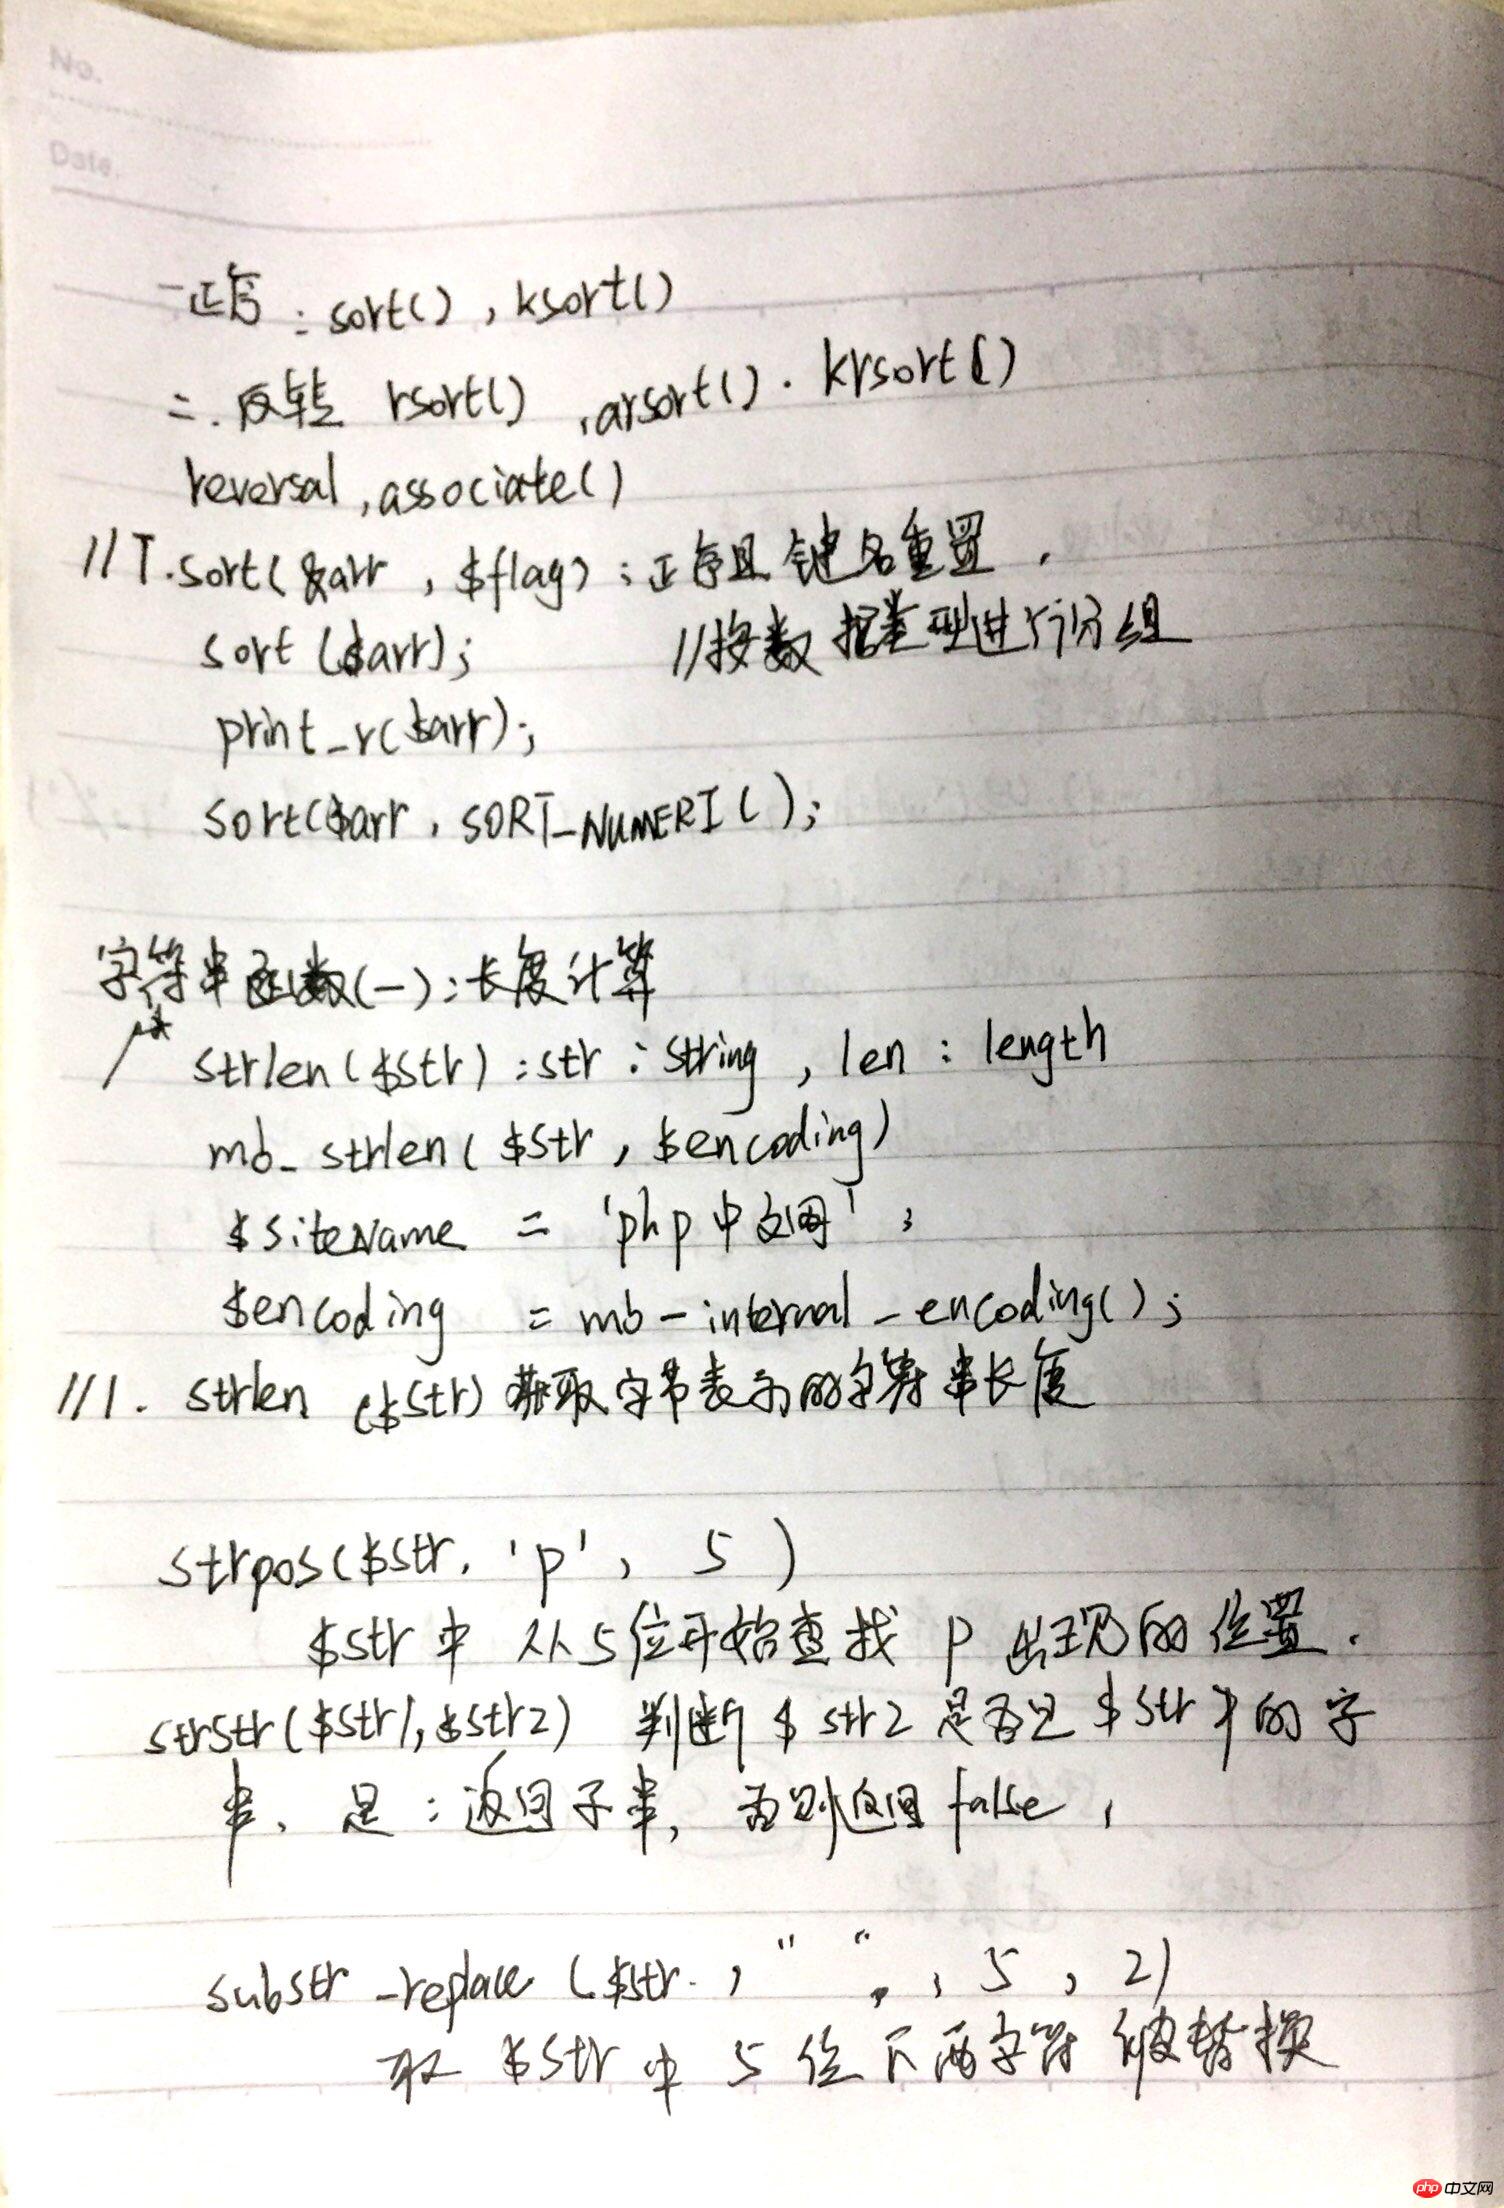 No.
Date.
一正序：sort()，ksort()
二．反转 rsort()，arsort()．krsort()
reversal，associate()
//T.sort(&arr，$flag)：正序且键名重置．
sort($arr)； //按数据类型进行分组
print_r($arr)；
sort($arr，SORT_NUMERI()；
字符串函数(一)：长度计算
strlen($str)：str：string，len：length
mb_strlen($str，$encoding)
$siteName = 'php中文网'；
$encoding = mb-internal_encoding()；
//1. strlen ($str) 获取字节表示的字符串长度
strpos($str，'p'，5)
$str中 从5位开始查找 p 出现的位置．
strstr($str1,$str2) 判断$str2是否见$str 的字
串、是：返回子串，否则返回false，
substr_replace($str．，" "，，5，2)
取 $str中 5位下两字符 被替换
php 中文网